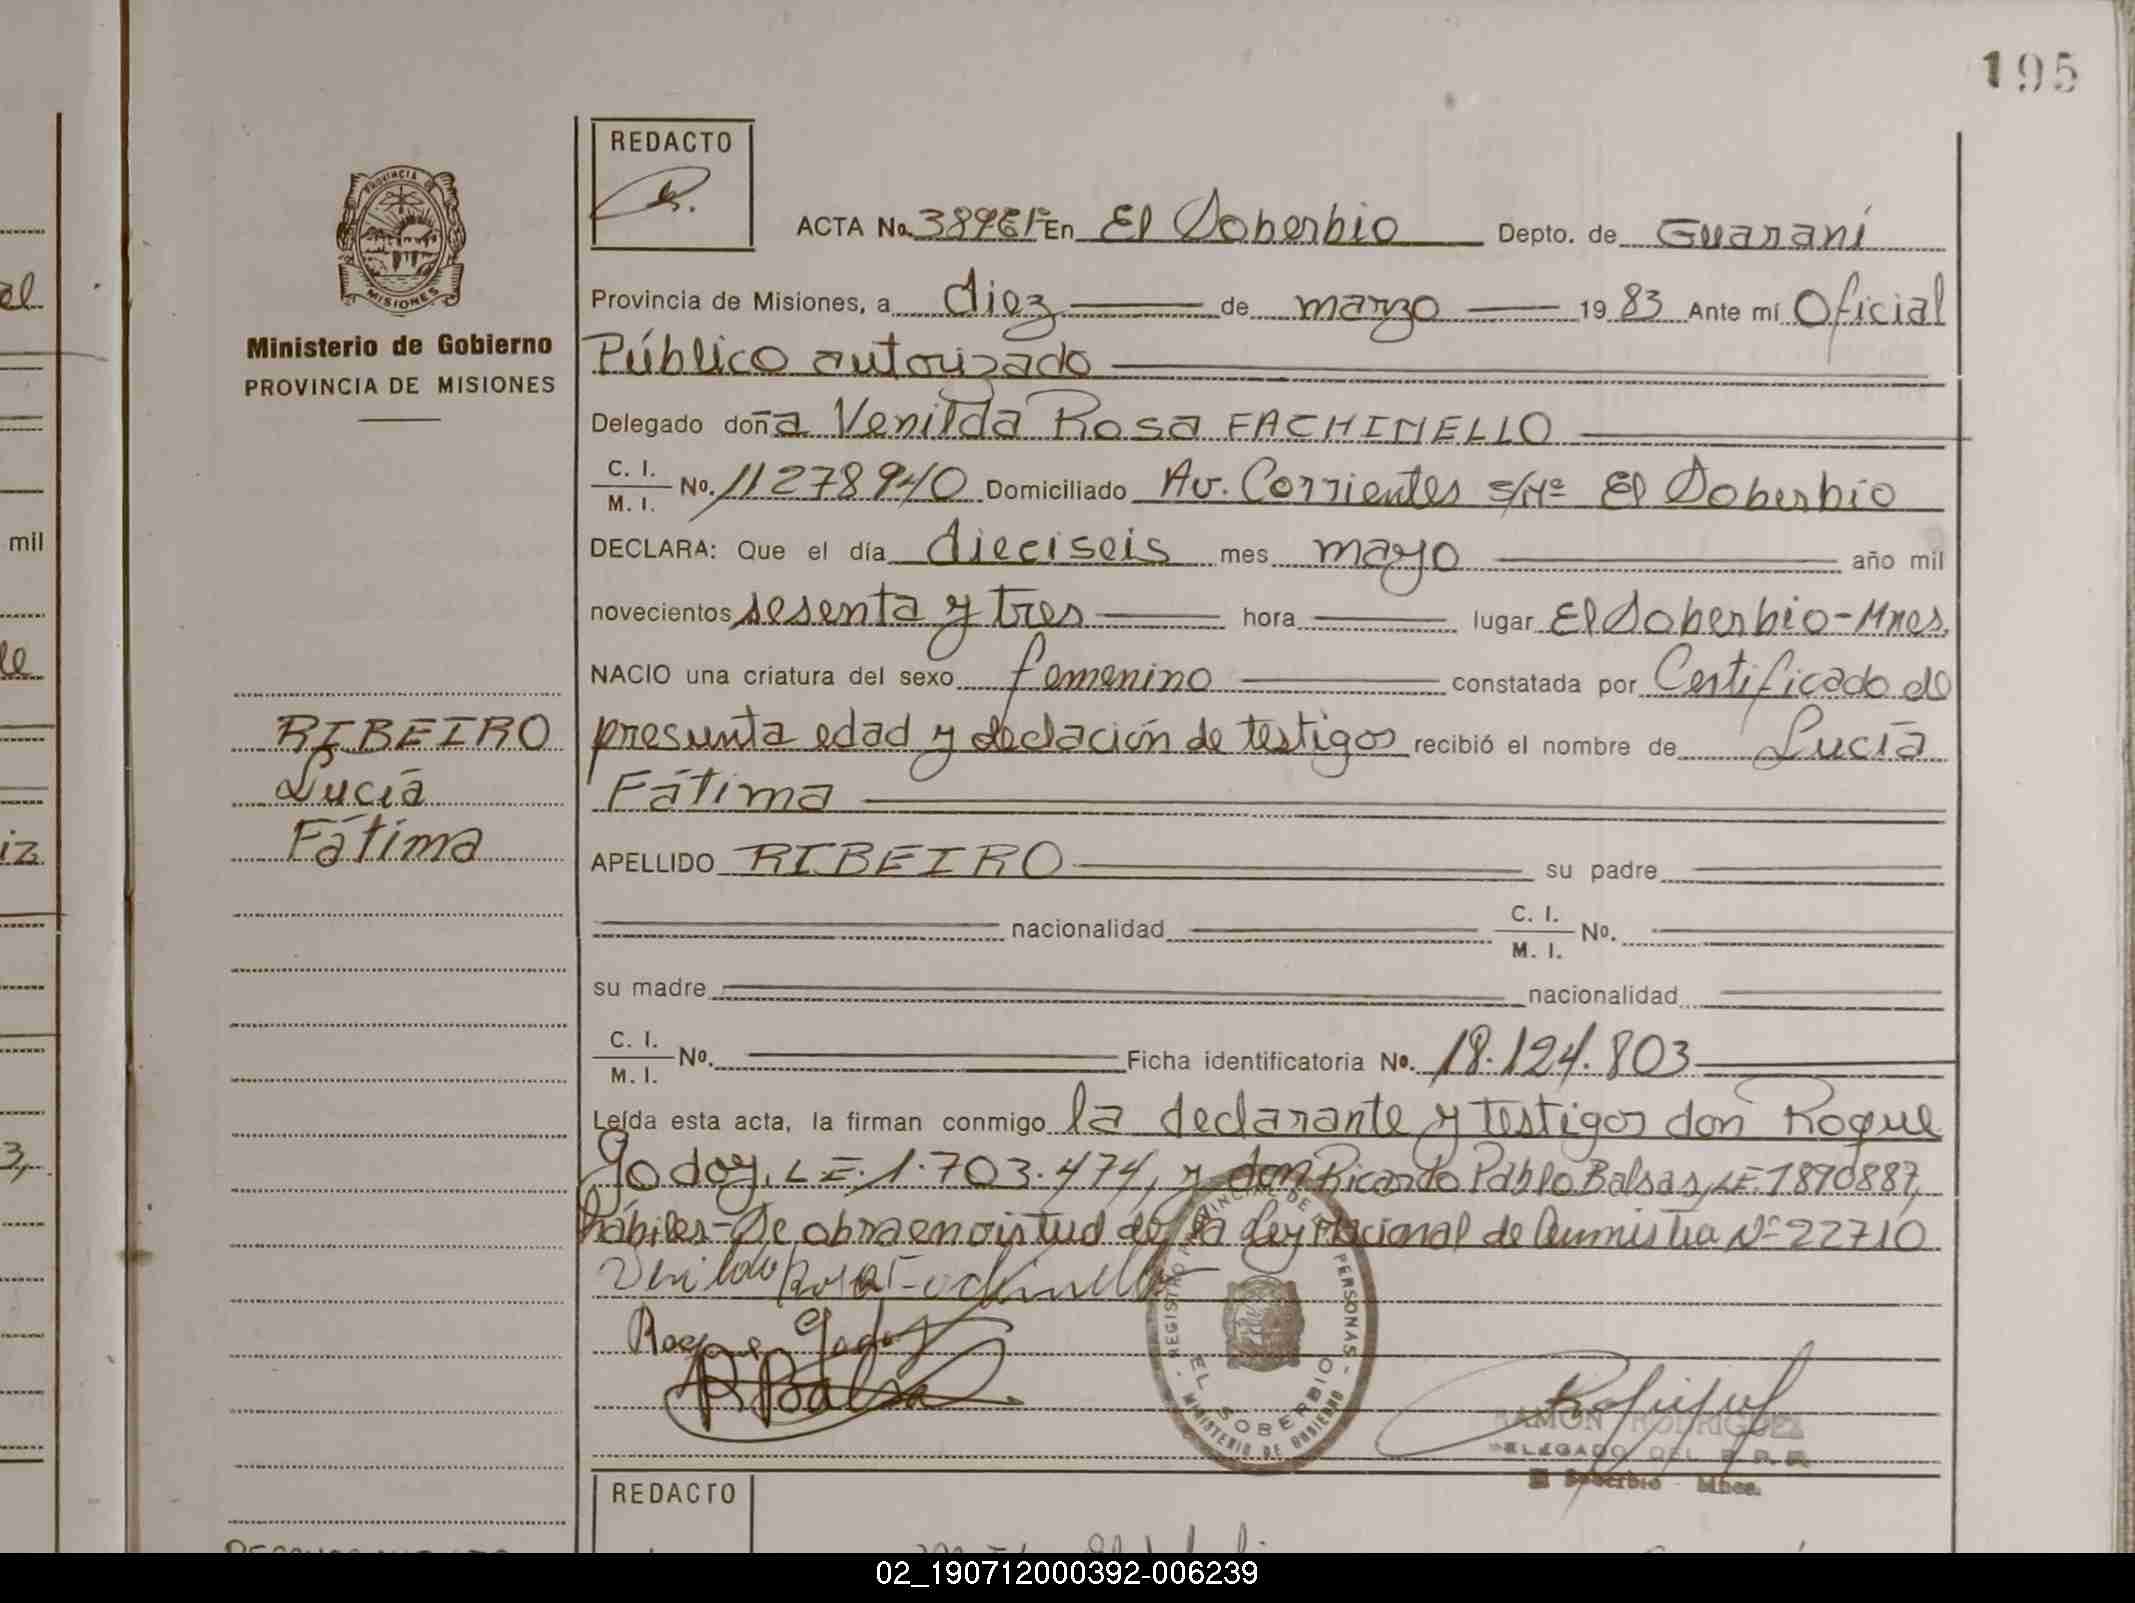 195
REDACTO
ACTA No. En El Soberbio Depto. de Guaraní
Provincia de Misiones, a diez de marzo 1983 Ante mí Oficial
Público autorizado
Delegado doña Venilda Rosa FACHINELLO
C. I.
M. I. No. 11278940 Domiciliado Av. Corrientes s/Nº El Soberbio
DECLARA: Que el día dieciseis mes mayo año mil
novecientos sesenta y tres hora lugar El Soberbio-Mnes.
NACIO una criatura del sexo femenino constatada por Certificado de
presunta edad y declación de testigos recibió el nombre de Lucía
Fátima
APELLIDO RIBEIRO su padre
nacionalidad C. I.
M. I. No.
su madre nacionalidad
C. I.
M. I. No. Ficha identificatoria No. 18.124.803
Leída esta acta, la firman conmigo la declarante y testigos don Roque
Godoy, LE.1.703.474, y don Ricardo Pablo Balsas, LE.
hábiles-Se obra en virtud de la Ley Nacional de Nº 22710
Venilda Rosa Fachinello
Roque Godoy
R Balsa
REGISTRO PROVINCIAL DE PERSONAS - MINISTERIO DE GOBIERNO -
EL SOBERBIO
RAMON RODRIGUEZ
DELEGADO DEL R.P.P.
El Soberbio - Mnes.
PROVINCIA DE
MISIONES
Ministerio de Gobierno
PROVINCIA DE MISIONES
RIBEIRO
Lucía
Fátima
al
mil
le
iz
3,
REDACTO
02_190712000392-006239